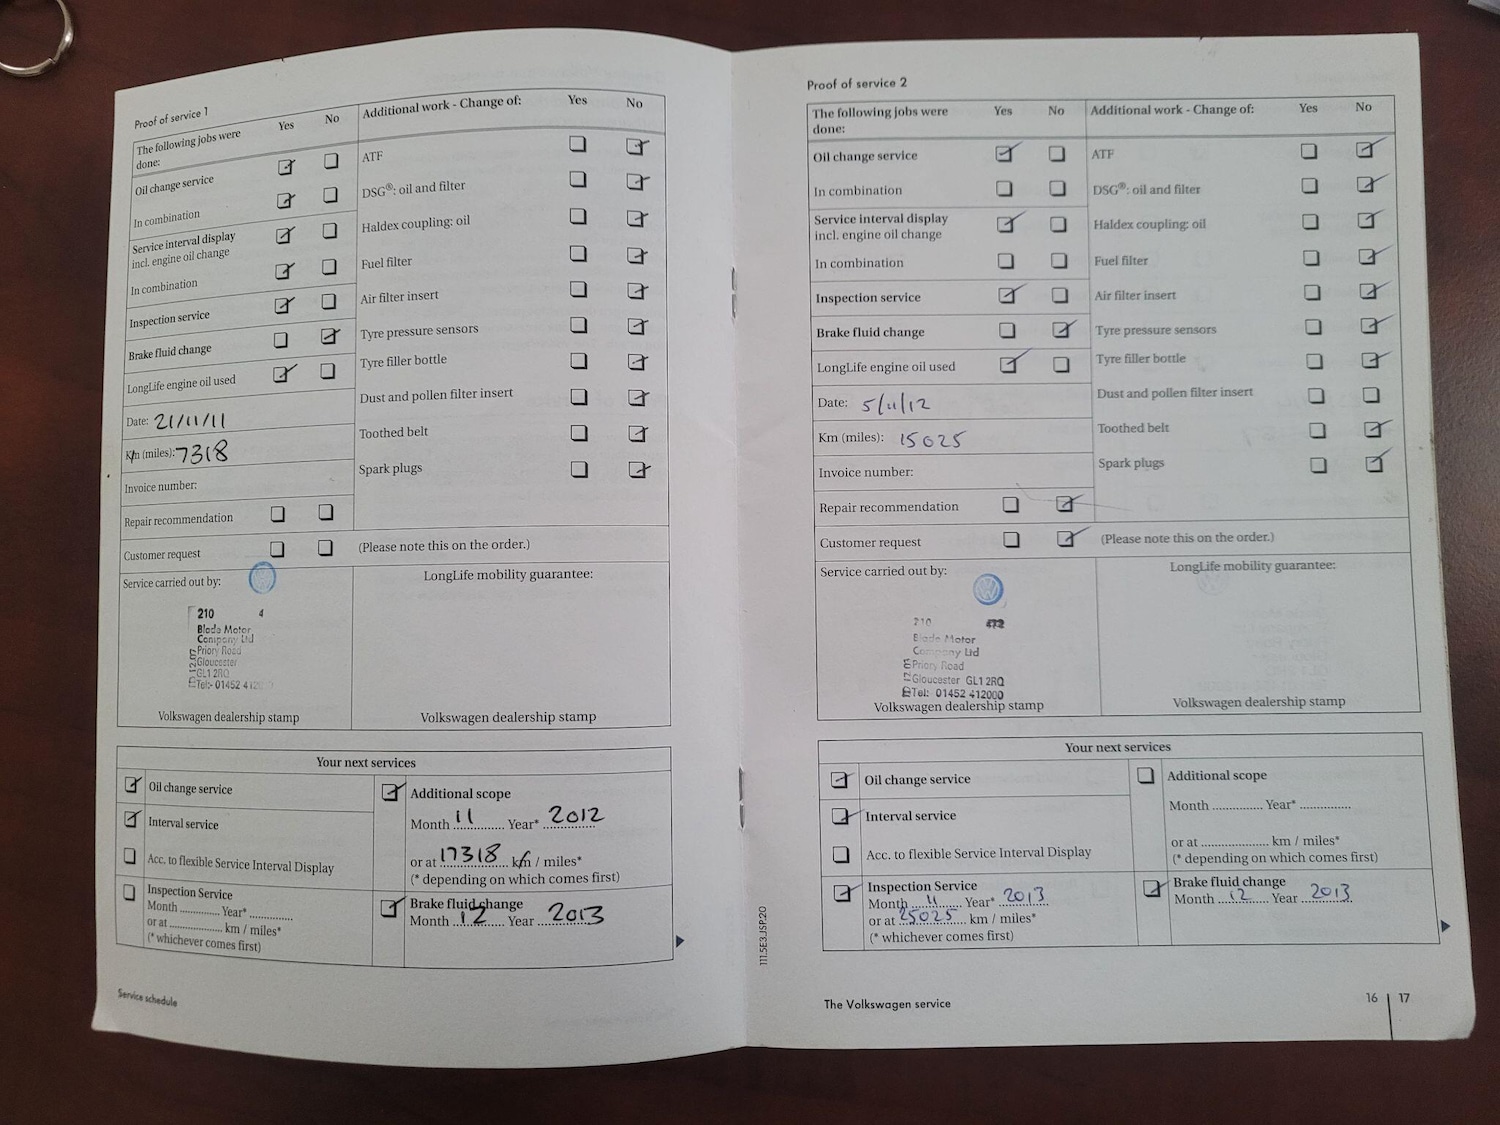 Proof of service 1
The following jobs were done: Yes No
Oil change service
In combination
Service interval display
incl. engine oil change
In combination
Inspection service
Brake fluid change
LongLife engine oil used
Date: 21/11/11
Km (miles): 7318
Invoice number:
Repair recommendation
Customer request
Additional work - Change of: Yes No
ATF
DSG®: oil and filter
Haldex coupling: oil
Fuel filter
Air filter insert
Tyre pressure sensors
Tyre filler bottle
Dust and pollen filter insert
Toothed belt
Spark plugs
(Please note this on the order.)
Service carried out by:
210 4
Blade Motor
Company Ltd
Priory Road
Gloucester
GL1 2RQ
Tel:- 01452
Volkswagen dealership stamp
LongLife mobility guarantee:
Volkswagen dealership stamp
Your next services
Oil change service
Interval service
Acc. to flexible Service Interval Display
Inspection Service
Month ............. Year* ..............
or at .................... km / miles*
(* whichever comes first)
Additional scope
Month 11 Year* 2012
or at 17318 km / miles*
(* depending on which comes first)
Brake fluid change
Month 12 Year 2013
Service schedule
111.5E3.JSP.20
Proof of service 2
The following jobs were Yes No
done:
Oil change service
In combination
Service interval display
incl. engine oil change
In combination
Inspection service
Brake fluid change
LongLife engine oil used
Date: 5/11/12
Km (miles): 15025
Invoice number:
Repair recommendation
Customer request
Additional work - Change of: Yes No
ATF
DSG®: oil and filter
Haldex coupling: oil
Fuel filter
Air filter insert
Tyre pressure sensors
Tyre filler bottle
Dust and pollen filter insert
Toothed belt
Spark plugs
(Please note this on the order.)
Service carried out by:
210
Blade Motor
Company Ltd
Priory Road
Gloucester GL1 2RQ
Tel: 01452 412000
Volkswagen dealership stamp
LongLife mobility guarantee:
Volkswagen dealership stamp
Your next services
Oil change service
Interval service
Acc. to flexible Service Interval Display
Inspection Service
Month 11 Year* 2013
or at 25025 km / miles*
(* whichever comes first)
Additional scope
Month .............. Year* ..............
or at .................... km / miles*
(* depending on which comes first)
Brake fluid change
Month 12 Year 2013
The Volkswagen service
16 17